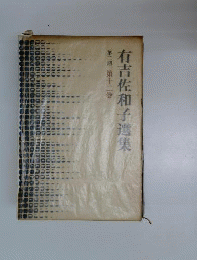 有吉佐和子選集
第二期 第十二巻